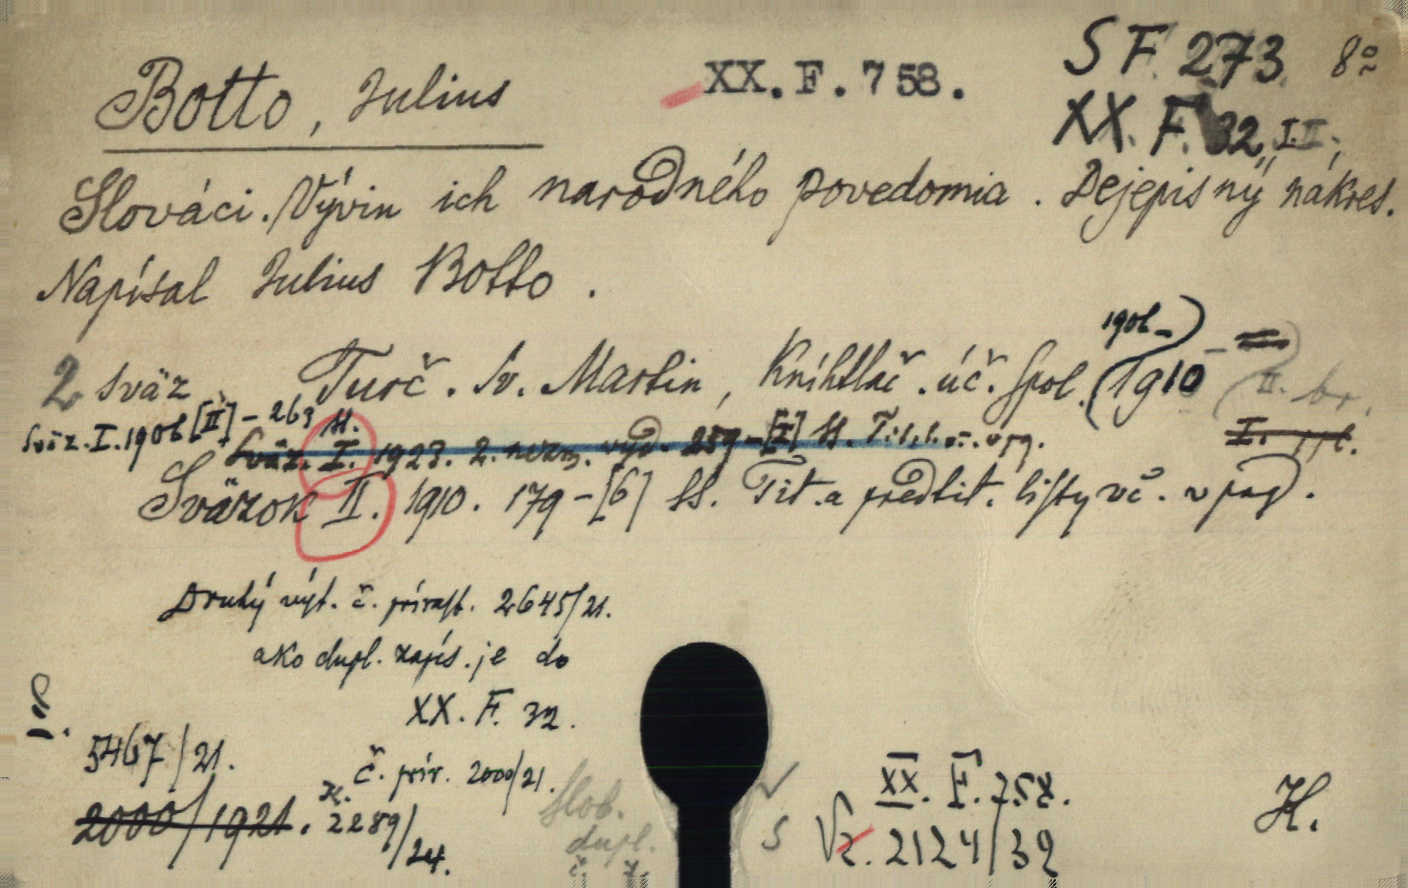 SF 273 8º
Botto, Julius XX.F.758.
XX. F. 32, I.II.;
Slováci. Vývin ich národného povedomia. Dejepisný nákres.
Napísal Julius Botto.
1906-
2 sväz Turč. Sv. Martin, Kníhtlač. úč. spol. (1910 II. br.
Sväz. I. 1906 [II] - 263 ss.
Sväz. I. 1923. 2. nezm. vyd. 259-[I] ss. Tit. l. vč. v pg. I.
Sväzok II. 1910. 179-[6] ss. Tit. a predtit. listy vč. v pag.
Druhý výt. č. prírast. 2645/21.
ako dupl. zapís. je do
XX. F. 32.
5467/21. č. prír. 2000/21.
2000/1921. 2289/24.
Slob.
dupl.
č.
XX. F. 758.
S 2124/32
H.